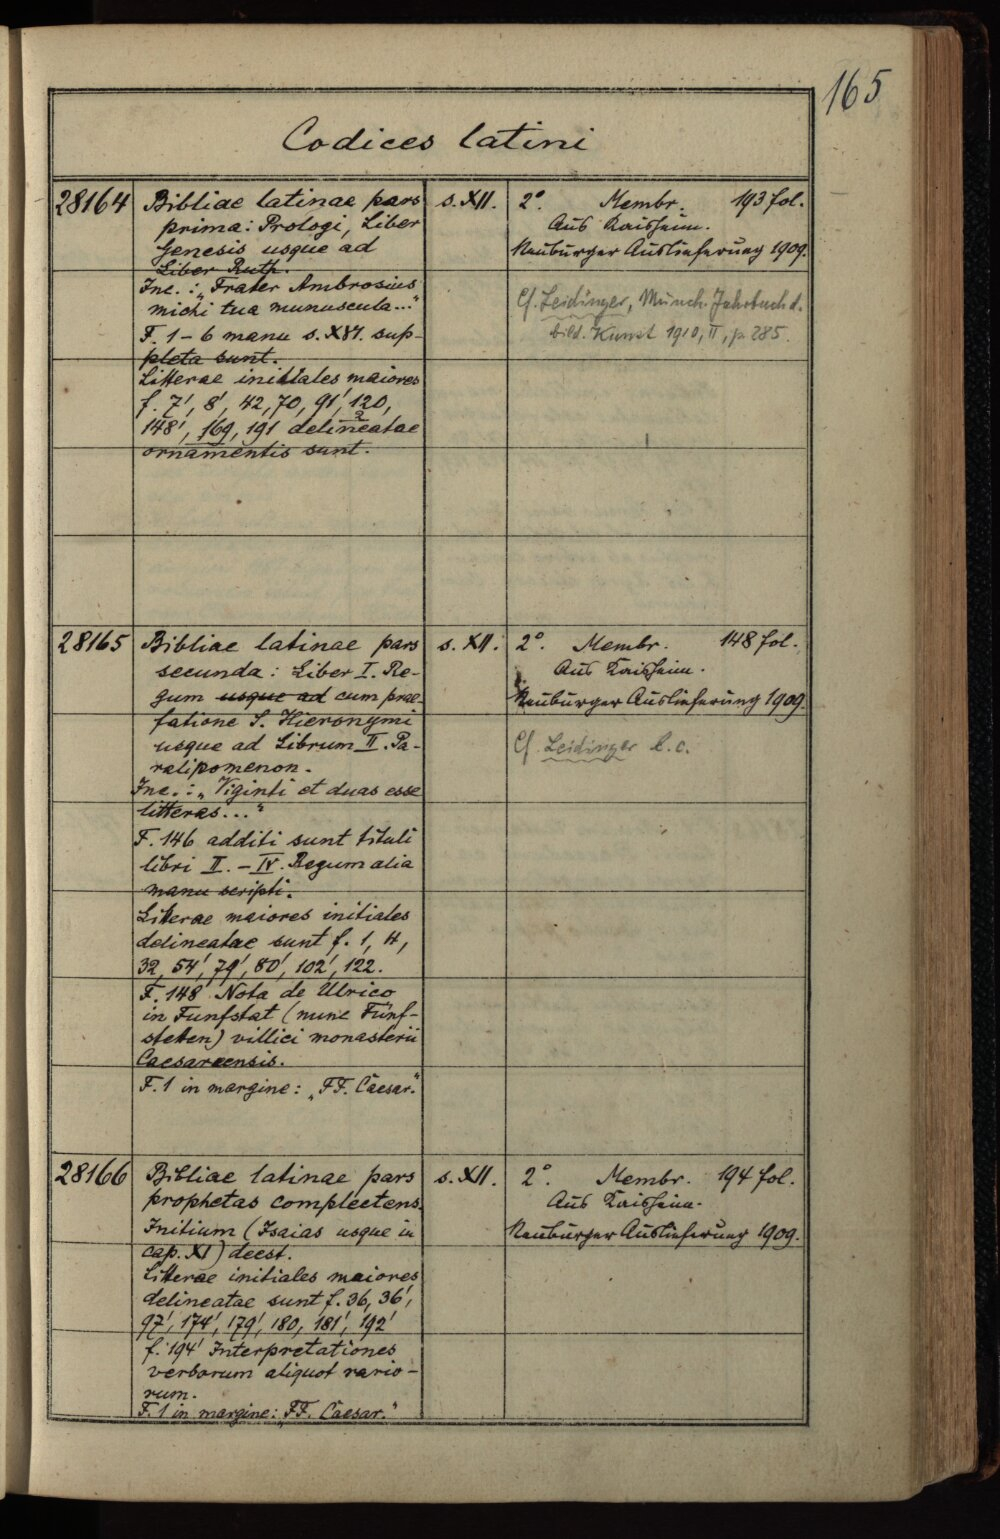 165
Codices latini
28164
Bibliae latinae pars
prima: Prologi, Liber
Genesis usque ad
Liber Ruth.
Inc.: „Frater Ambrosius
michi tua munuscula..."
F. 1 – 6 manu s. XVI. sup-
pleta sunt.
Litterae initiales maiores
f. 7', 8', 42, 70, 91', 120,
148', 169, 191 delineatae
ornamentis sunt.
s. XII.
2°. Membr. 193 fol.
Aus Kaisheim.
Neuburger Auslieferung 1909.
Cf. Leidinger, Münch. Jahrbuch d.
bild. Kunst 1910, II, p. 285.
28165
Bibliae latinae pars
secunda: Liber I. Re-
gum usque ad cum prae-
fatione S. Hieronymi
usque ad Librum II. Pa-
ralipomenon.
Inc.: „Viginti et duas esse
litteras..."
F. 146 additi sunt tituli
libri II. – IV. Regum alia
manu scripti.
Literae maiores initiales
delineatae sunt f. 1, 11,
32, 54', 79', 80', 102', 122.
F. 148' Nota de Ulrico
in Funfstat (nunc Fünf-
stetten) villici monasterii
Caesareensis.
F. 1 in margine: „FF. Caesar."
s. XII.
2°. Membr. 148 fol.
Aus Kaisheim.
Neuburger Auslieferung 1909.
Cf. Leidinger l. c.
28166
Bibliae latinae pars
prophetas complectens.
Initium (Isaias usque in
cap. XI) deest.
Litterae initiales maiores
delineatae sunt f. 36, 36',
97', 174', 179', 180, 181', 192'
f. 194' Interpretationes
verborum aliquot rario-
rum.
F. 1 in margine: „FF. Caesar."
s. XII.
2°. Membr. 194 fol.
Aus Kaisheim.
Neuburger Auslieferung 1909.